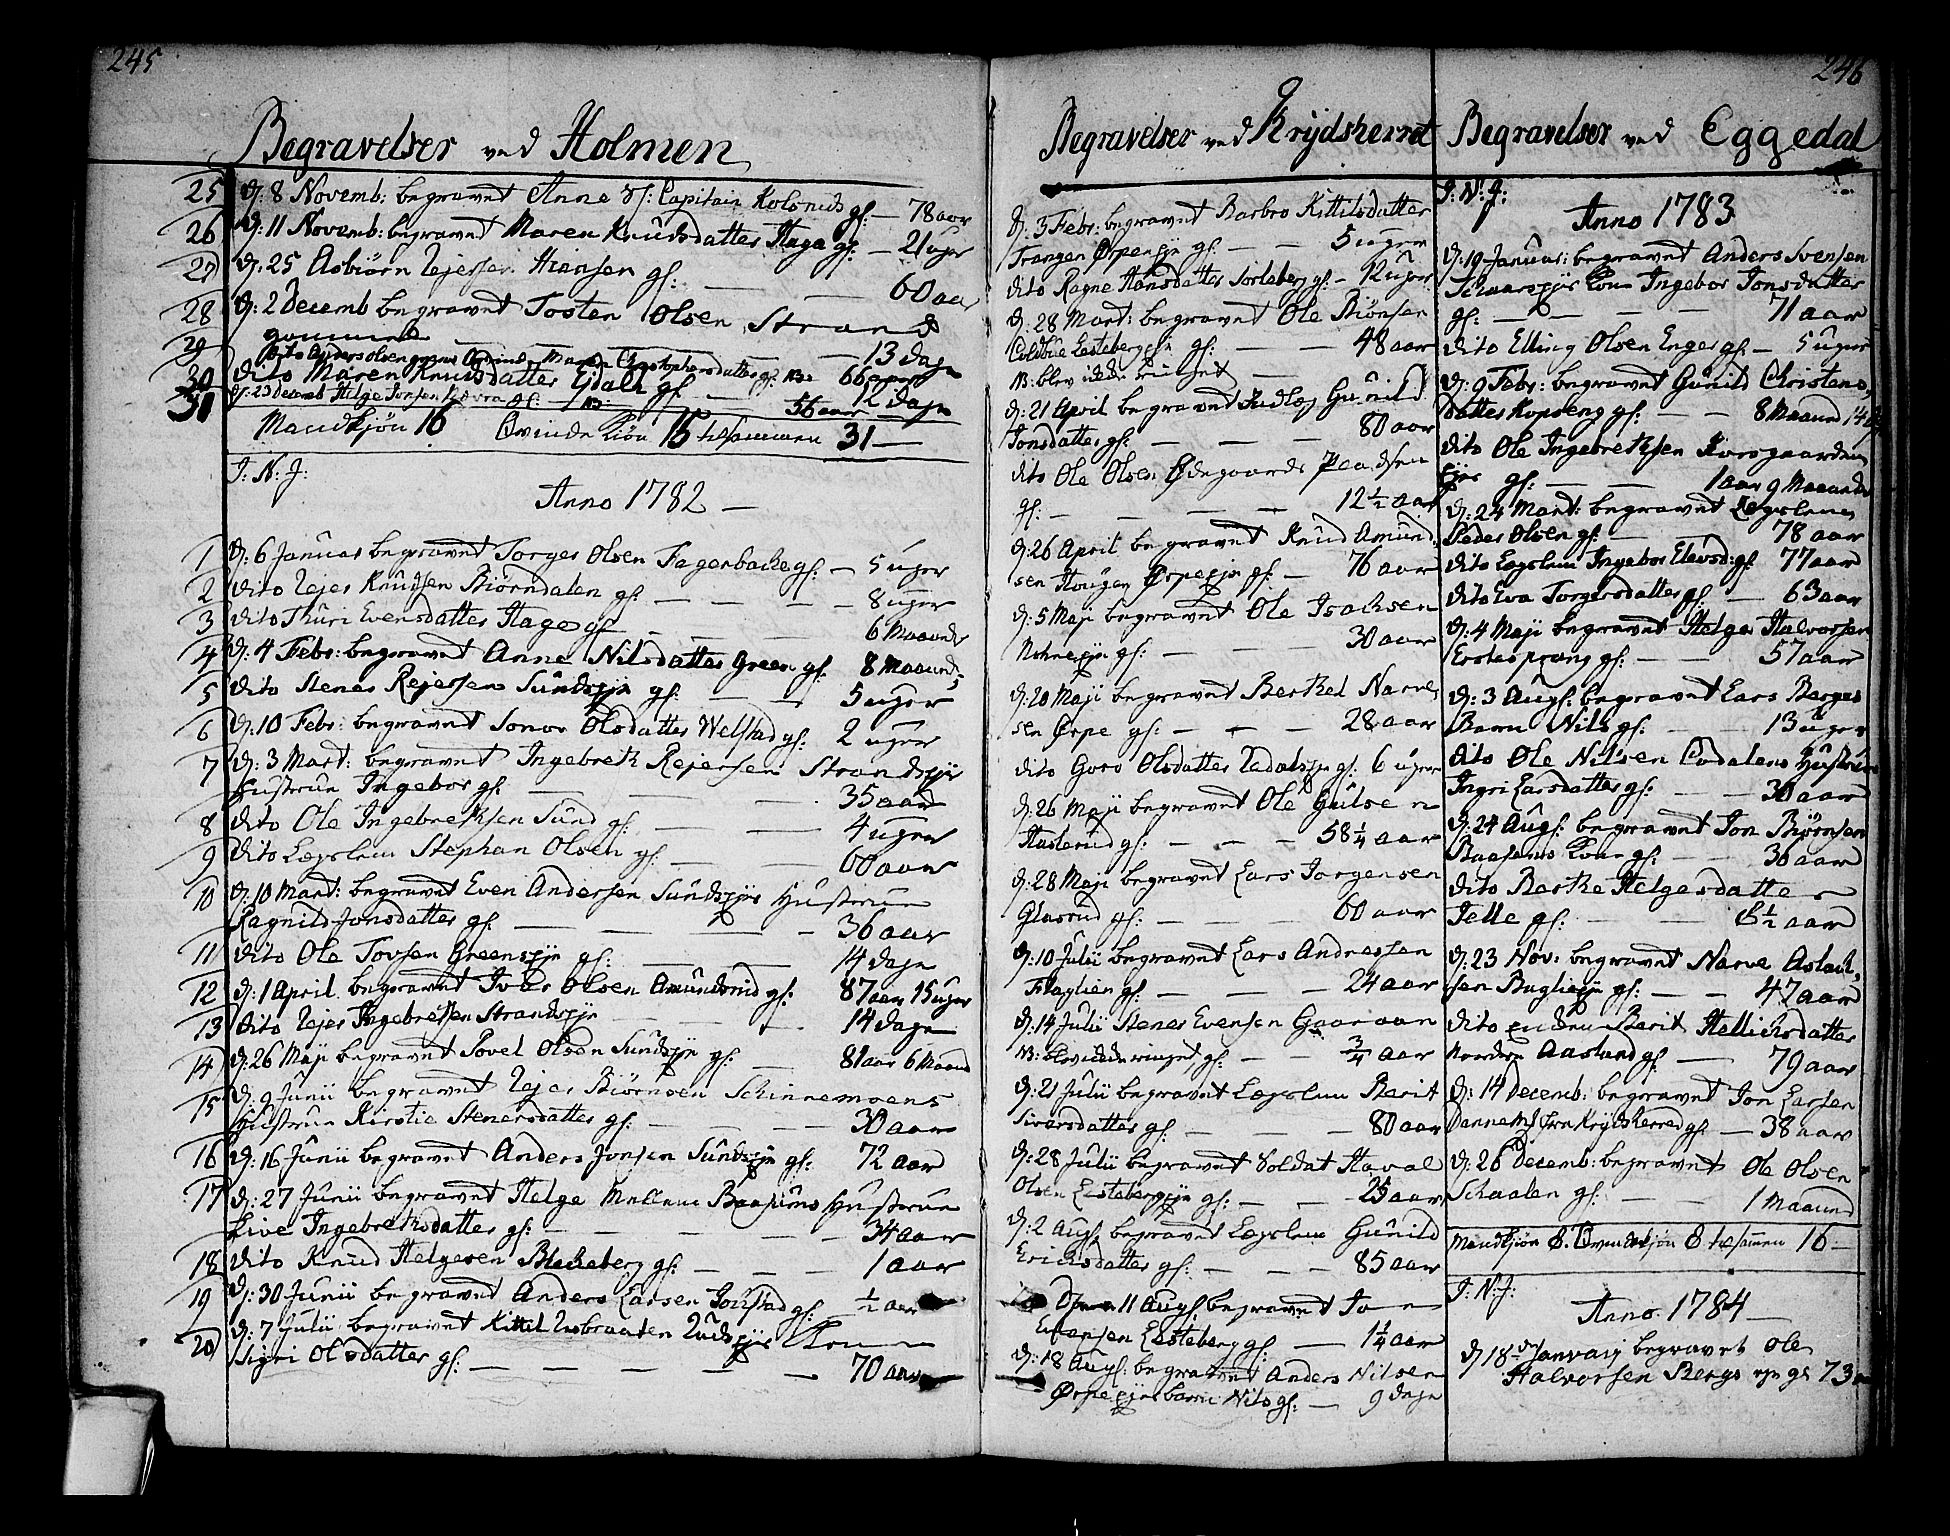 245
Begravelser ved Holmen
25 d: 8 Novemb: begravet Anne Sl: Capitain Kolsruds gf: — 78 aar
26 d: 11 Novemb: begravet Maren Knudsdatter Hage gf: — 21 uger
27 d: 25 Asbiörn Rejersen Hiansen gf: — — 60 aar
28 d: 2 Decemb begravet Tosten Olsen Strand
gammel — — 13 dage
29 dito Anders Olsen Maren Christophersdatter gf: 66 aar
30 dito Maren Knudsdatter Ejdahl gf — 12 dage
31 d: 23 Decemb Helge Jonsen gf: — 56 aar —
Mandkjön 16 Qvindekiön 15 tilsammen 31 —
J: N: J:
Anno 1782 —
1 d: 6 Januar begravet Torger Olsen Fagerbacke gf: — 5 uger
2 dito Rejer Knudsen Biörndalen gf: — — — 8 uger
3 dito Thuri Evensdatter Hage gf — — — 6 Maaneder
4 d: 4 Febr: begravet Anne Nilsdatter Green gf: 8 Maaneder
5 dito Stener Rejersen Sundsejr gf: — — 5 uger
6 d: 10 Febr: begravet Gonor Olsdatter Welstad gf: 2 uger
7 d: 3 Mart: begravet Ingebreth Rejersen Strandsejr
Hustrue Ingebor gf: — — — 35 aar
8 dito Ole Ingebrethsen Sund gf: — — 4 uger
9 dito Lægslem Stephan Olsen gf: — — 60 aar
10 d: 10 Mart: begravet Even Andersen Sundsejrs Hustrue
Ragnild Jonsdatter gf: — — — — 36 aar
11 dito Ole Tovsen Greensejr gf: — — 14 dage
12 d: 1 April begravet Iver Olsen Amundsrud gf: 87 aar 15 uger
13 dito Rejer Ingebrethsen Strandsejr — — — 14 dage
14 d: 26 Maji begravet Povel Olsen Sundsejr gf: — 81 aar 6 Maaned
15 d: 9 Junii begravet Rejer Biörnsen Schinnemoens
Hustrue Kirstie Stenersdatter gf: — — — 30 aar
16 d: 16 Junii begravet Anders Jonsen Sundsejr gf: 72 aar
17 d: 27 Junii begravet Helge Mellum Baasums Hustrue
Live Ingebrethsdatter gf: — — — — 34 aar
18 dito Knud Helgesen Blekeberg gf: — — — 1 aar
19 d: 30 Junii begravet Anders Larsen Joustad gf: ½ aar
20 d: 7 Julii begravet Kittel Ruds ejes Kone
Sigri Olsdatter gf: — — — — — 70 aar
Begravelser ved Krydsherret
d: 3 Febr: begravet Barbro Kittilsdatter
Trangen Ørpe ejr gf: — — 5 uger
dito Ragne Hansdatter Sorteberg gf: — 12 uger
d: 28 Mart: begravet Ole Biönsen
Coldbue Lesteberg ejr gf: — — 48 aar
NB: blev idde ringet —
d: 21 April begravet Gunild
Jonsdatter gf: — — — 80 aar
dito Ole Olsen Ødegaards
gf: — — — — 12½ aar
d: 26 April begravet Knud Amund-
sen Hougen Ørpe ejr gf: — 76 aar
d: 5 Maji begravet Ole Isachsen
ejr gf: — — — 30 aar
d: 20 Maji begravet Berthel Narve-
sen Ørpe gf: — — — 28 aar
dito Goro Olsdatter gf: 6 uger
d: 26 Maji begravet Ole Gulsen
Hasterud gf: — — — 58¼ aar
d: 28 Maji begravet Lars Jorgensen
Glasrud gf: — — — 60 aar
d: 10 Julii begravet Lars Andersen
Flaglien gf: — — — 24 aar
d: 14 Julii Stener Evensen
NB: blev idde ringet, gf: — — ¾ aar
d: 21 Julii begravet Lægslem Berit
Siversdatter gf: — — — 80 aar
d: 28 Julii begravet Soldat Haval
Olsen Lesteberg ejr gf: — — 25 aar
d: 2 Augl begravet Lægslem Gunild
Erichsdatter gf: — — — 85 aar
Den 11 Augl begravet
Evensen Lesteberg gf: — — 1¼ aar
d: 18 Augl: begravet Anders Nilsen
Ørpe ejes barn Nils gf: — 9 dage
246
Begravelser ved Eggedal
J: N: J:
Anno 1783
d: 19 Januar: begravet Anders Svensen
Kone Ingebor Jonsdatter
gf: — — — — — 71 aar
dito Elling Olsen Enger gf: — 5 uger
d: 9 Febr: begravet Gunild Christens-
datter Kopseng gf: — — 8 Maaned 14 d
dito Ole Ingebrethsen
ejer gf: — — 1 aar 9 Maaneder
d: 24 Mart: begravet Lægslem
Peder Olsen gf: — — 78 aar
dito Lægslem Ingebor Elevsd: gf 77 aar
dito Eva Torgersdatter gf: — 63 aar
d: 4 Maji begravet Helge Halvorsen
gf: — — 57 aar
d: 3 Augl: begravet Lars Berges
Barn Nils gf: — — 13 uger
dito Ole Nilsen Hustrue
Ingri Larsdatter gf: — — 30 aar
d: 24 Augl: begravet Jon Biørnsen
Baasens Kone gf: — — 30 aar
dito Berthe Helgesdatter
Telle gf: — — 8½ aar
d: 23 Nov: begravet Narve Aslach-
sen Bagliejr gf: — — 47 aar
dito Berit Hellichsdatter
Nordre Aasland gf: — 79 aar
d: 14 Decemb: begravet Jon Larsen
fra Krydsherred gf: — 38 aar
d: 26 Decemb: begravet Ole Olsen
Schaalen gf: — — 1 Maaned
Mandkjön 8. Qvindekjön 8 tilsammen 16 —
J: N: J:
Anno 1784 —
d 18 de Januarij begravet Ole
Halvorsen Bergs ejr gf 73